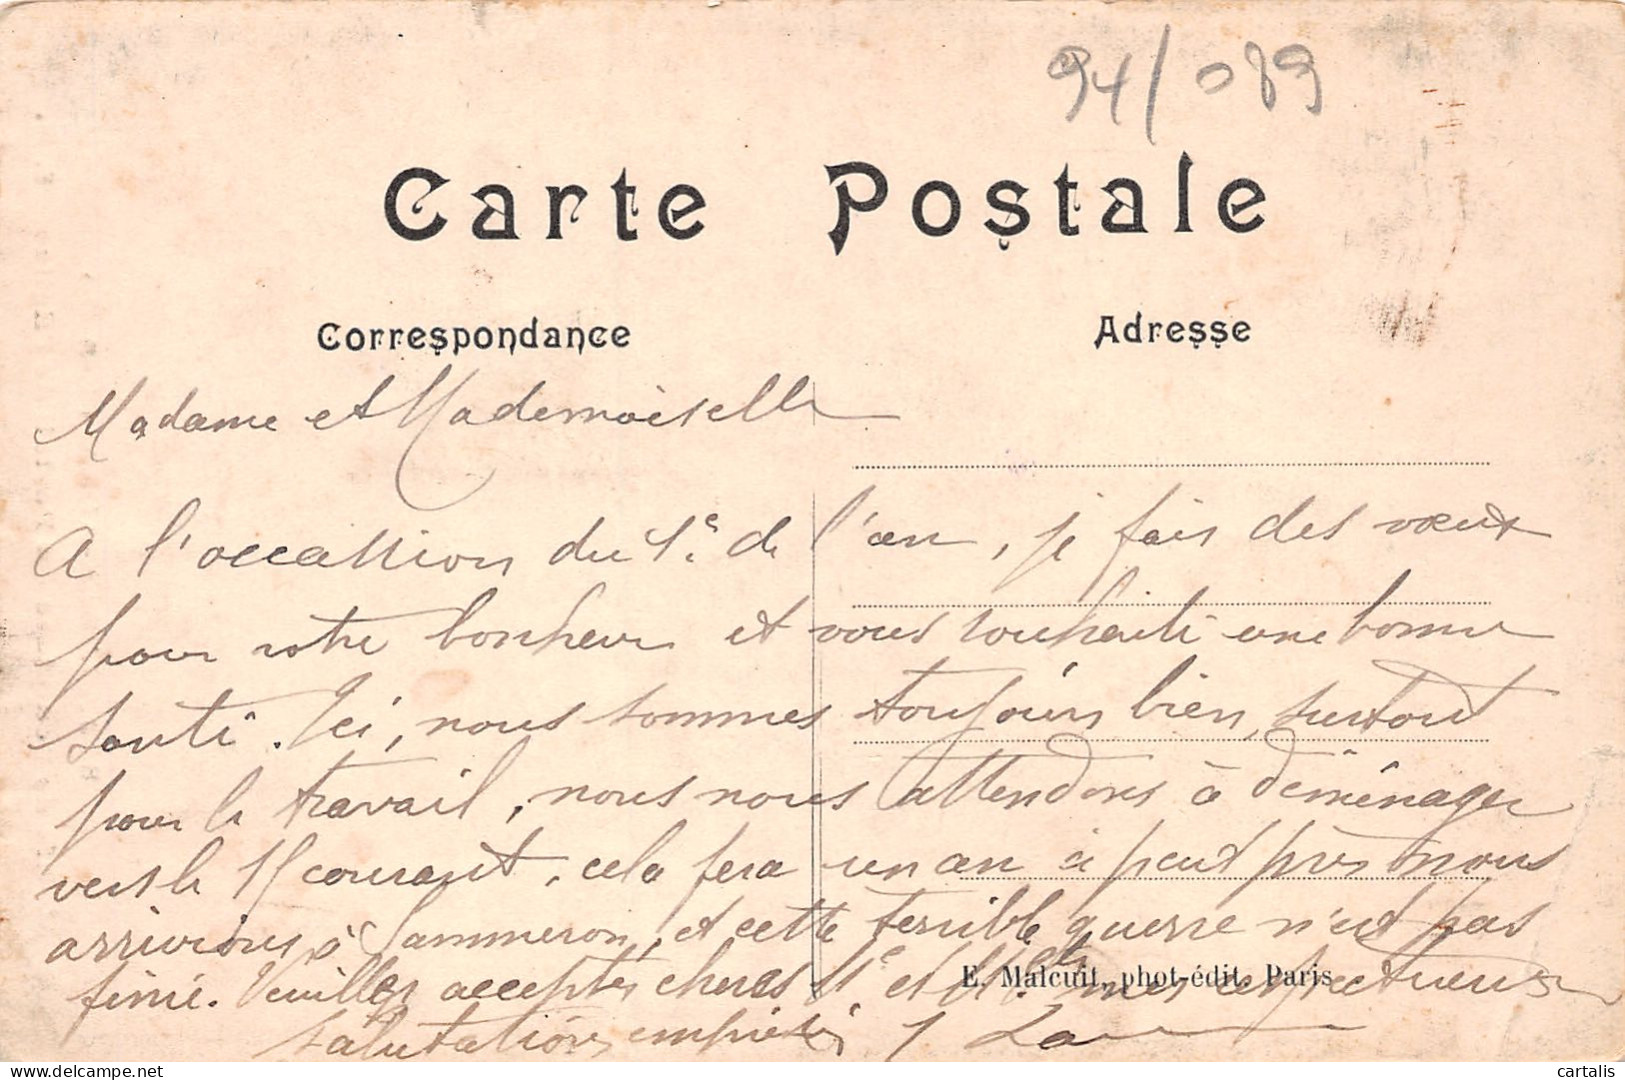 94/089
Carte Postale
Correspondance
Adresse
Madame et Mademoiselle
A l'occassion du 1e de l'an, je fais des vœux
pour votre bonheur et vous souhaite une bonne
santé. Ici, nous sommes toujours bien, surtout
pour le travail, nous nous attendons à déménager
vers le 15 courant, cela fera un an à peut près nous
arrivions à Sammeron, et cette terrible guerre n'est pas
finie. Veuillez acceptés chères Me et Melle mes respectueuses
salutations empressés
E. Malcuit, phot-édit. Paris
cartalis